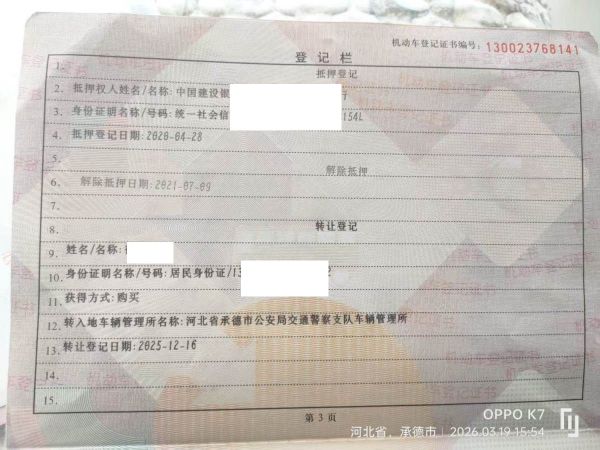 机动车登记证书编号：130023768141
登记栏
1. 抵押登记
2. 抵押权人姓名/名称:中国建设银
3. 身份证明名称/号码:统一社会信 154L
4. 抵押登记日期:2020-04-28
5. 解除抵押
6. 解除抵押日期:2021-07-09
7.
8. 转让登记
9. 姓名/名称:
10. 身份证明名称/号码:居民身份证/13 2
11. 获得方式:购买
12. 转入地车辆管理所名称:河北省承德市公安局交通警察支队车辆管理所
13. 转让登记日期:2025-12-16
14.
15.
第3页
OPPO K7
河北省，承德市 | 2026.03.19 15:54